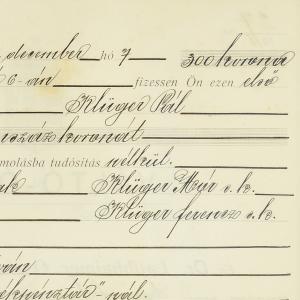 december hó 7 300 korona
6-án fizessen Ön ezen első
Klüger Pál
száz koronát
molásba tudósítás nélkül.
Klüger Mór s.k.
Klüger ferencz s.k.
ván
nál.